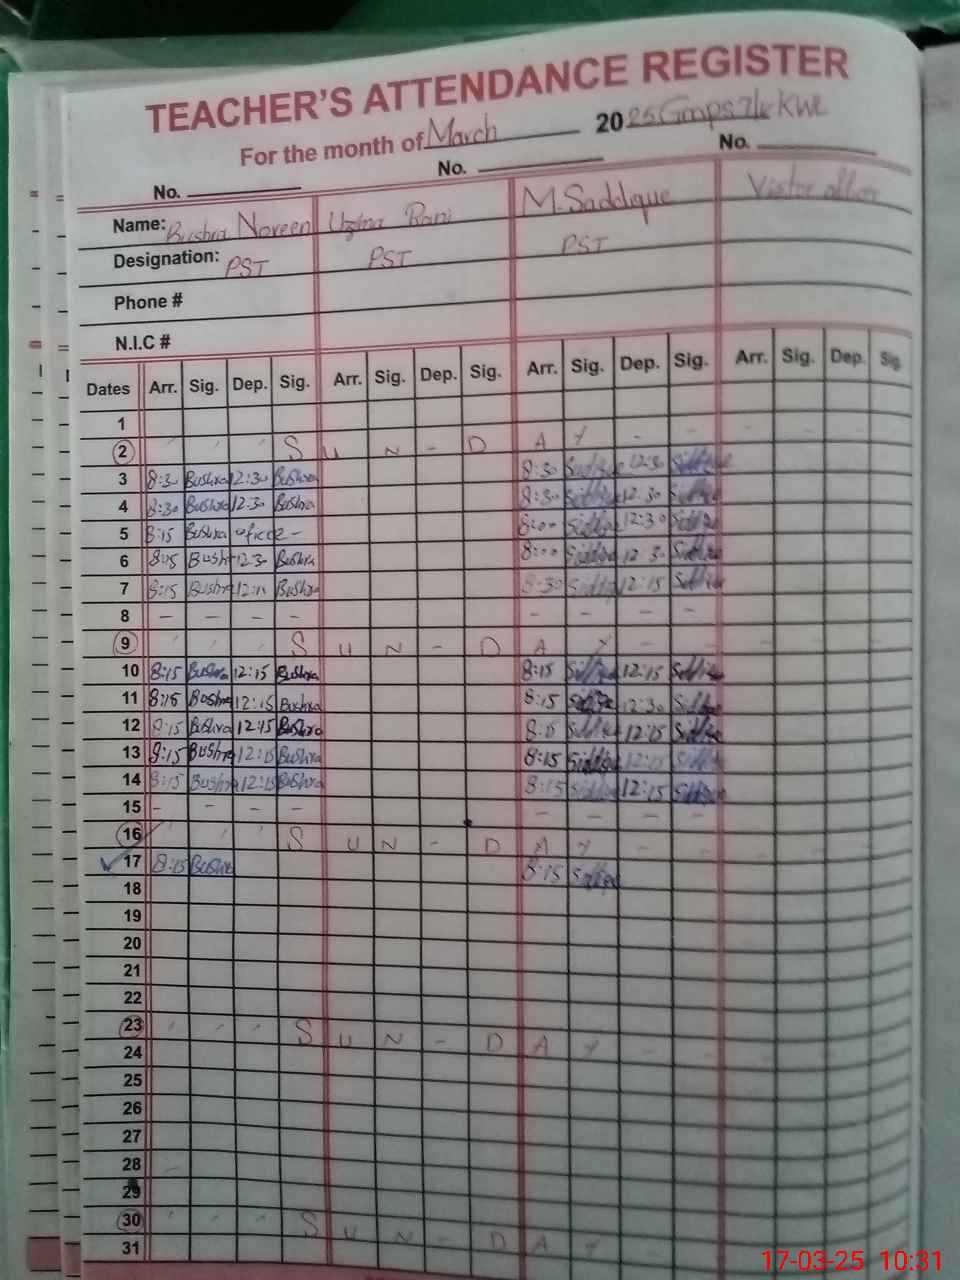 TEACHER'S ATTENDANCE REGISTER
For the month of March 2025 Gmps 7/k KWL
No. No. No.
Name: Bushra Noreen Uzma Rani M. Saddique
Designation: PST PST PST
Phone #
N.I.C #
Dates Arr. Sig. Dep. Sig. Arr. Sig. Dep. Sig. Arr. Sig. Dep. Sig. Arr. Sig. Dep. Sig.
1
2 S U N - D A Y - -
3 8:30 Bushra 12:30 Bushra 8:30 12:30
4 8:30 Bushra 12:30 Bushra 8:30 12:30
5 8:15 Bushra office - 8:00 12:30
6 8:15 Bushra 12:30 Bushra 8:00 12:30
7 8:15 Bushra 12:15 Bushra 8:30 12:15
8 - - - - - - - -
9 S U N - D A Y - -
10 8:15 Bushra 12:15 Bushra 8:15 12:15
11 8:15 Bushra 12:15 Bushra 8:15 12:30
12 8:15 Bushra 12:15 Bushra 8:15 12:15
13 8:15 Bushra 12:15 Bushra 8:15 12:15
14 8:15 Bushra 12:15 Bushra 8:15 12:15
15 - - - - - - - -
16 S U N - D A Y - -
17 8:15 Bushra 8:15
18
19
20
21
22
23 S U N - D A Y - -
24
25
26
27
28
29
30 S U N - D A Y
31
17-03-25 10:31